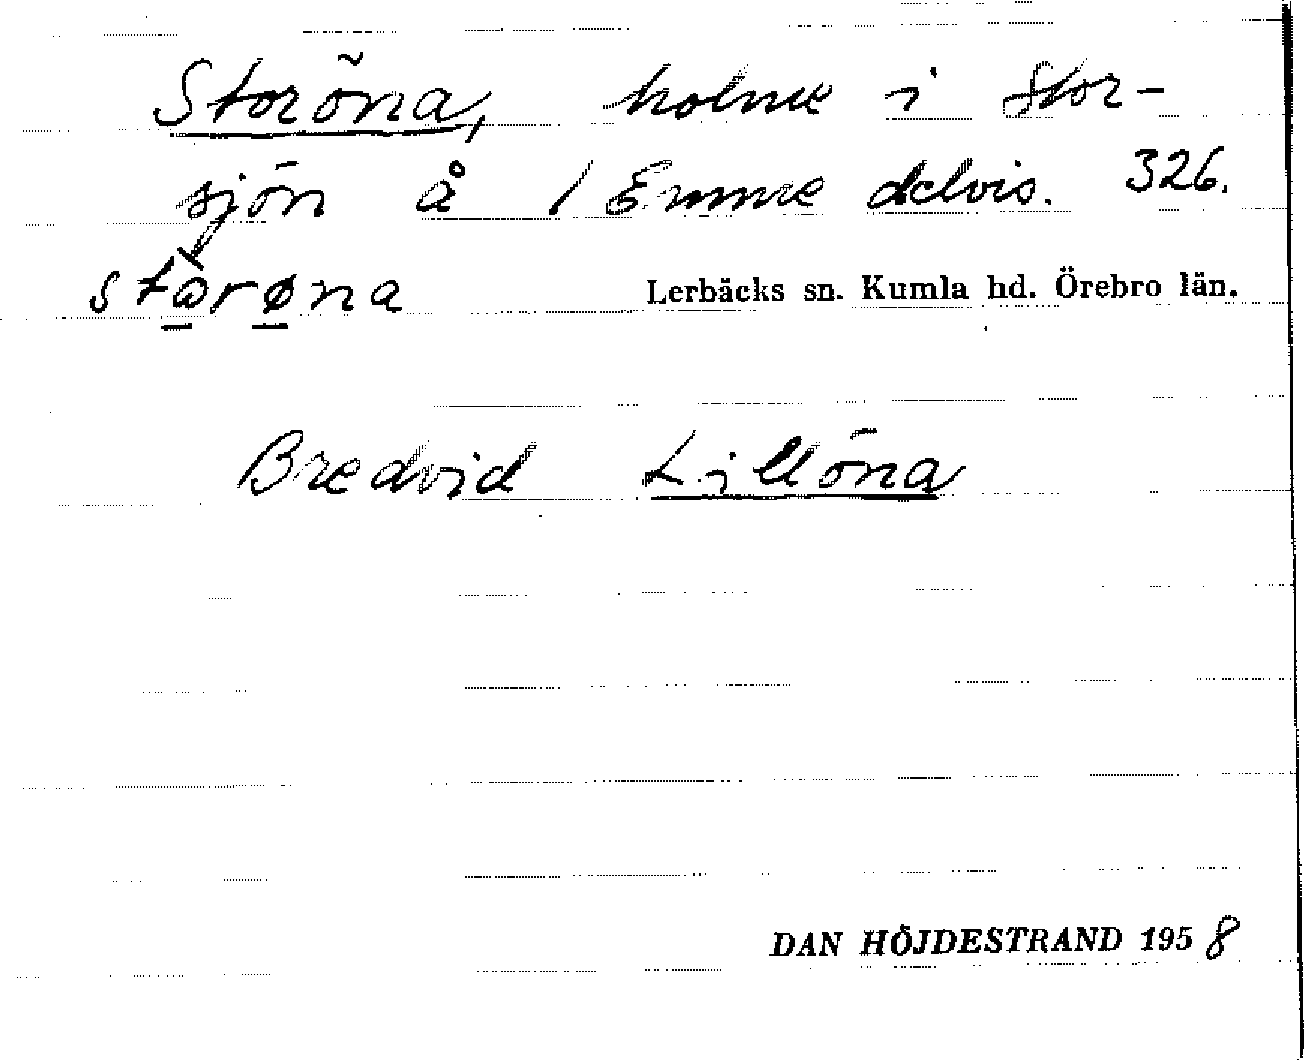 Storöna, holme i Stor-
sjön å 1 Emme delvis. 326.
stωrøna Lerbäcks sn. Kumla hd. Örebro län.
Bredvid Lillöna
DAN HÖJDESTRAND 1958